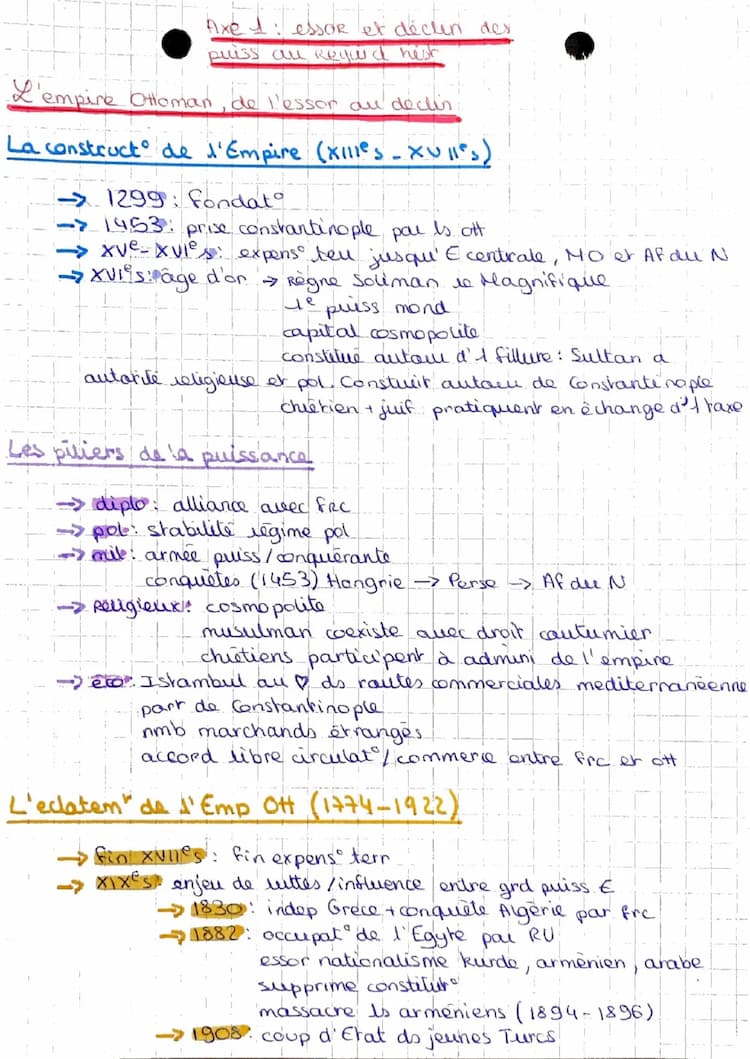 Axe 1 : essor et déclin des
puiss au regard hist
L'empire Ottoman, de l'essor au declin
La construct° de l'Empire (XIIIe s - XVIIe s)
→ 1299 : fondat°
→ 1453 : prise constantinople par ls ott
→ XVe - XVIe s : expens° teu jusqu'E centrale, MO et Af du N
→ XVIe s : âge d'or → Règne Soliman le Magnifique
1e puiss mond
capital cosmopolite
constitué autour d'1 fillure : Sultan a
autorité religieuse et pol. Construit autour de Constantinople
chrétien + juif pratiquent en échange d'1 taxe
Les piliers de la puissance
→ diplo : alliance avec frc
→ pol : stabilité régime pol
→ mil : armée puiss / conquérante
conquêtes (1453) Hongrie → Perse → Af du N
→ Religieux : cosmopolite
musulman coexiste avec droit coutumier
chrétiens participent à admini de l'empire
→ éco : Istambul au ♡ ds routes commerciales mediterranéenne
port de Constantinople
nmb marchands étrangés
accord libre circulat° / commerce entre frc et ott
L'eclatemt de l'Emp Ott (1774-1922)
→ fin XVIIe s : fin expens° terr
→ XIXe s : enjeu de luttes / influence entre grd puiss €
→ 1830 : indep Grèce + conquête Algérie par frc
→ 1882 : occupat° de l'Egyte par RU
essor nationalisme kurde, arménien, arabe
supprime constitut°
massacre ls arméniens (1894-1896)
→ 1908 : coup d'Etat ds jeunes Turcs